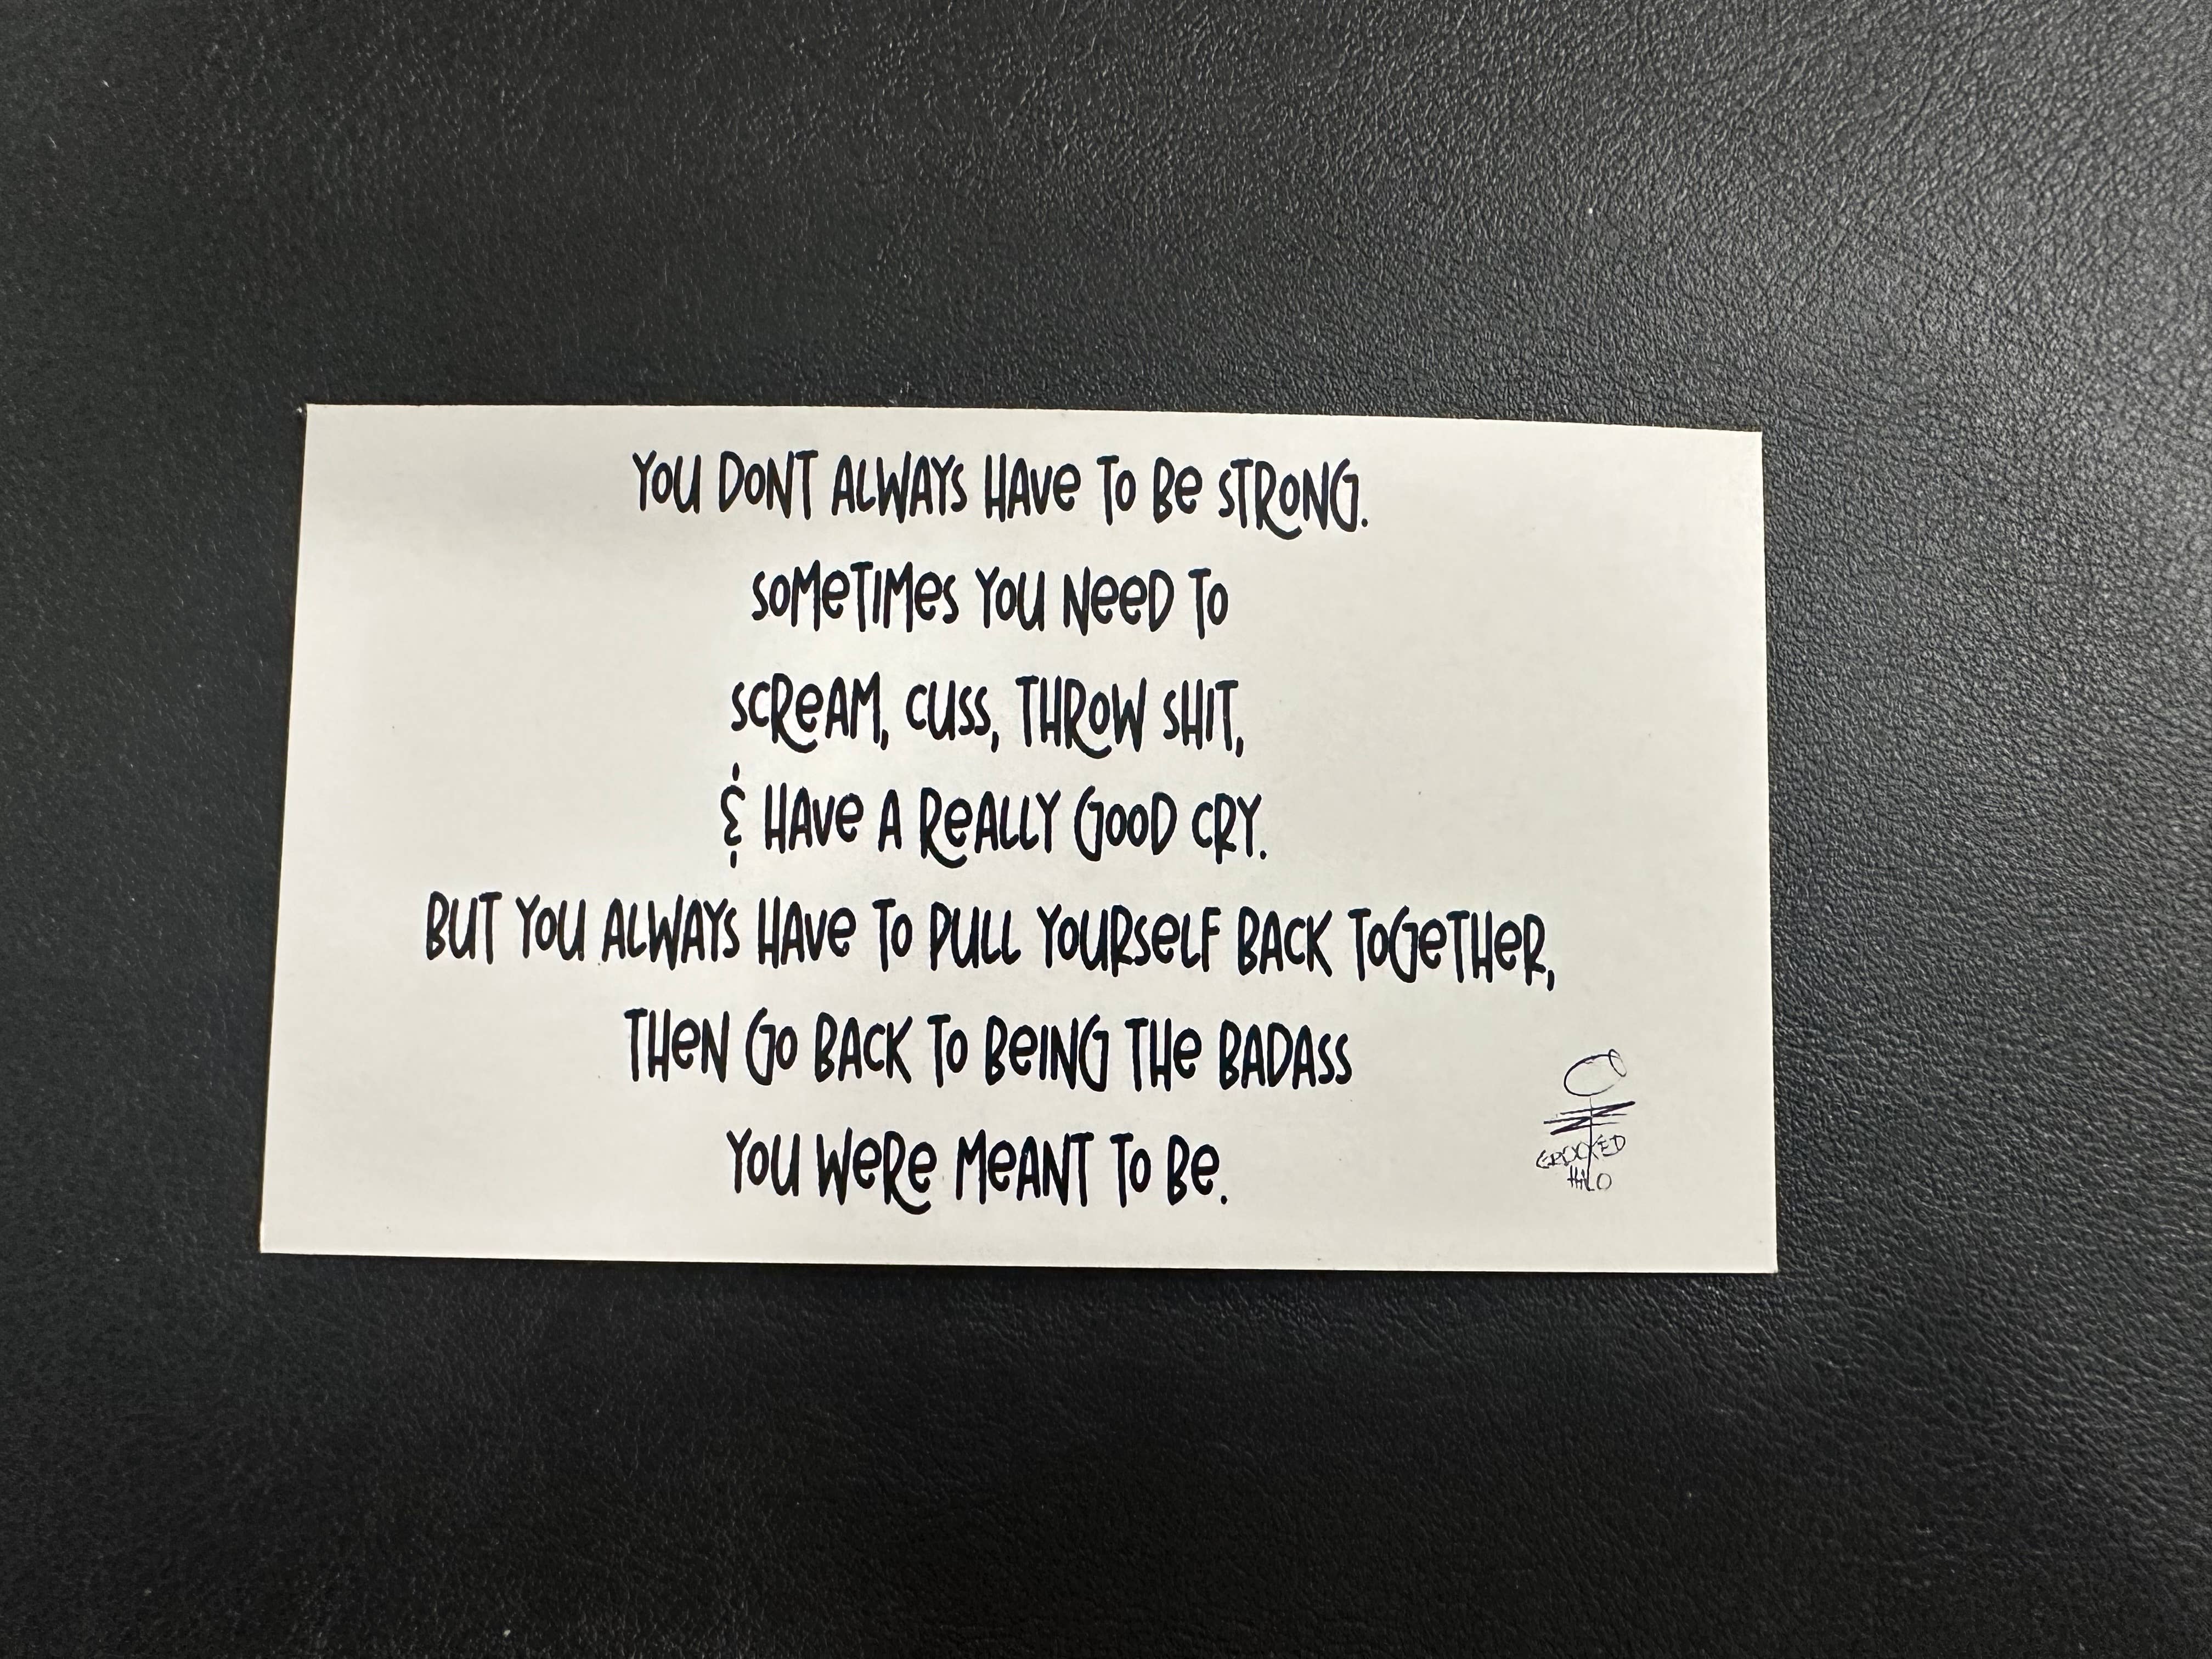 YOU DONT ALWAYS HAVE TO BE STRONG.
SOMETIMES YOU NEED TO
SCREAM, CUSS, THROW SHIT,
& HAVE A REALLY GOOD CRY.
BUT YOU ALWAYS HAVE TO PULL YOURSELF BACK TOGETHER,
THEN GO BACK TO BEING THE BADASS
YOU WERE MEANT TO BE.
CROOKED
HALO